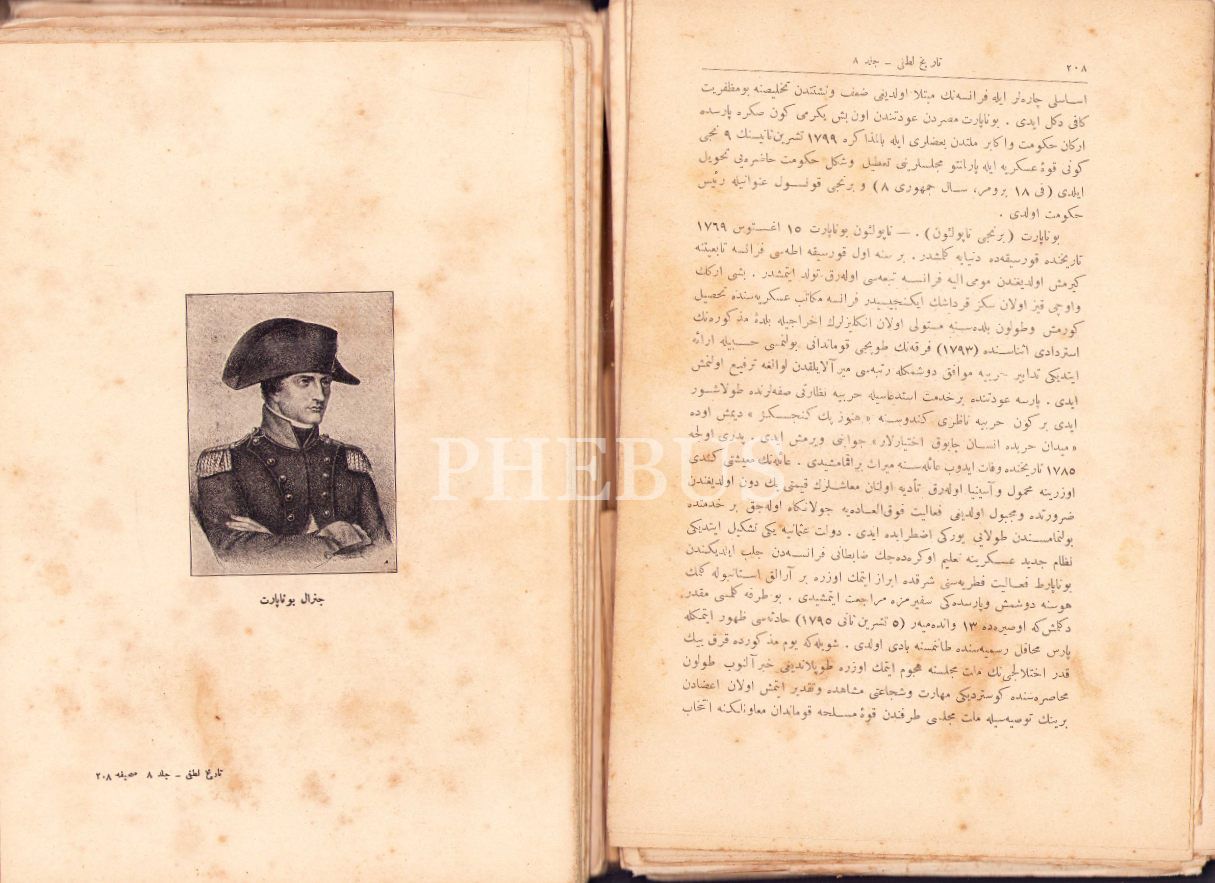 ٢٠٨
تاریخ لطفی ـ جلد ٨
اساسلی چاره‌لر ایله فرانسه‌نك مبتلا اولدیغی ضعف و تشتتدن تخلیصنه بو مظفریت
کافی دکل ایدی . بوناپارت مصردن عودتندن اون بش یکرمی کون صکره پارسده
ارکان حکومت و اکابر ملتدن بعضلری ایله بالمذاکره ١٧٩٩ تشرین ثانیسنك ٩ نجی
کونی قوۀ عسکریه ایله پارلمنتو مجلسلرینی تعطیل و شکل حکومت حاضره‌یی تحویل
ایلدی (فی ١٨ برومر، سال جمهوری ٨) و برنجی قونسول عنوانیله رئیس
حکومت اولدی .
بوناپارت (برنجی ناپولئون) . — ناپولئون بوناپارت ١٥ اغستوس ١٧٦٩
تاریخنده قورسیقه‌ده دنیایه کلمشدر . بر سنه اول قورسیقه اطه‌سی فرانسه تابعیتنه
کیرمش اولدیغندن مومی الیه فرانسه تبعه‌سی اوله‌رق تولد ایتمشدر . بشی ارکك
و اوچی قیز اولان سکز قرداشك ایکنجیسیدر فرانسه مکاتب عسکریه‌سنده تحصیل
کورمش و طولون بلده‌سنه مستولی اولان انکلیزلرك اخراجیله بلدۀ مذکوره‌نك
استردادی اثناسنده (١٧٩٣) فرقه‌نك طوپجی قوماندانی بولنمسی حسبیله ارائه
ایتدیکی تدابیر حربیه موافق دوشمکله رتبه‌سی میرآلایلقدن لوالغه ترفیع اولنمش
ایدی . پارسه عودتنده بر خدمت استدعاسیله حربیه نظارتی صفه‌لرنده طولاشور
ایدی بر کون حربیه ناظری کندوسنه « هنوز پك کنجسکز » دیمش اوده
« میدان حربده انسان چابوق اختیارلار» جوابنی ویرمش ایدی . پدری اولجه
١٧٨٥ تاریخنده وفات ایدوب عائله‌سنه میراث براقمامشیدی . عائله‌نك معیشتی کندی
اوزرینه محمول و آسینیا اوله‌رق تأدیه اولنان معاشلرك قیمتی پك دون اولدیغندن
ضرورتده و مجبول اولدیغی فعالیت فوق‌العاده‌یه جولانکاه اوله‌جق بر خدمتده
بولنمامسندن طولایی یورکی اضطرابده ایدی . دولت عثمانیه یکی تشکیل ایتدیکی
نظام جدید عسکرینه تعلیم اوکره‌ده‌جك ضابطانی فرانسه‌دن جلب ایلدیکندن
بوناپارط فعالیت فطریه‌سنی شرقده ابراز ایتمك اوزره بر آرالق استانبوله کلمك
هوسنه دوشمش و پارسده‌کی سفیرمزه مراجعت ایتمشیدی . بو طرفه کلمسی مقدر
دکلمش که اوصیره‌ده ١٣ وانده‌میه‌ر (٥ تشرین ثانی ١٧٩٥) حادثه‌سی ظهور ایتمکله
پارس محافل رسمیه‌سنده طانلمسنه بادی اولدی . شویله‌که یوم مذکورده قرق بیك
قدر اختلالجی‌نك ملت مجلسنه هجوم ایتمك اوزره طوپلاندیغی خبر آلنوب طولون
محاصره‌سنده کوستردیکی مهارت و شجاعتی مشاهده و تقدیر ایتمش اولان اعضادن
برینك توصیه‌سیله ملت مجلسی طرفندن قوۀ مسلحه قوماندان معاونلکنه انتخاب
جنرال بوناپارت
تاریخ لطفی ـ جلد ٨ صحیفه ٢٠٨
PHEBUS